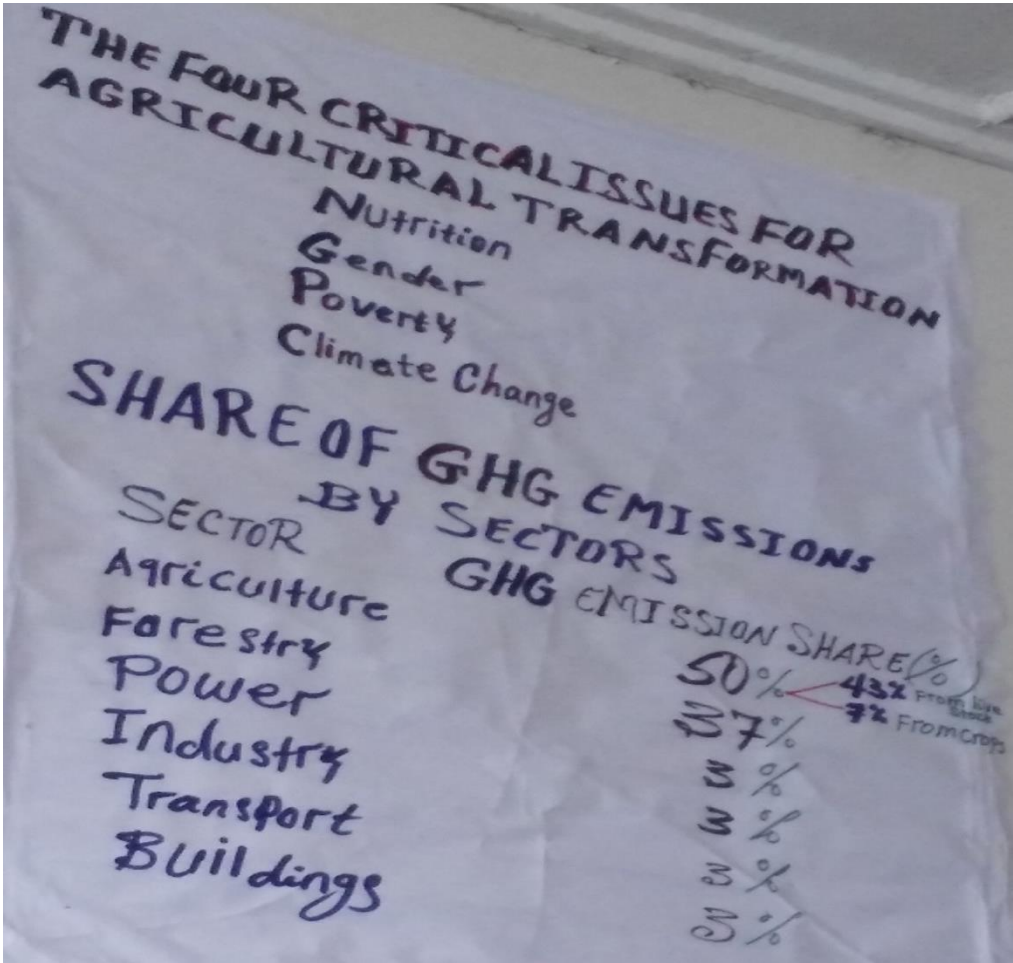 THE FOUR CRITICAL ISSUES FOR
AGRICULTURAL TRANSFORMATION
Nutrition
Gender
Poverty
Climate Change
SHARE OF GHG EMISSIONS
BY SECTORS
SECTOR GHG EMISSION SHARE (%)
Agriculture 50% 43% From live stock
7% From crops
Forestry 37%
Power 3%
Industry 3%
Transport 3%
Buildings 3%